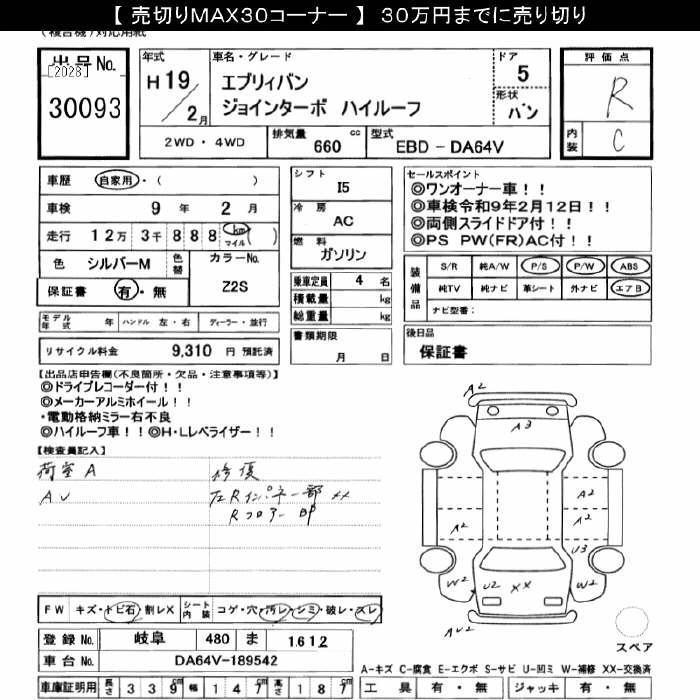 【 売切りMAX30コーナー 】 30万円までに売り切り
(複合機)対応用紙
出品No.
[2028]
30093
年式
H 19 / 2 月
車名・グレード
エブリィバン
ジョインターボ ハイルーフ
ドア
5
形状
バン
評価点
R
内装
C
2WD・4WD
排気量 660 cc
型式 EBD - DA64V
車歴 自家用・( )
車検 9 年 2 月
走行 12万 3千 8 8 8 km マイル ( )
色 シルバーM
色替
カラーNo.
Z2S
保証書 有・無
シフト
I5
冷房
AC
燃料
ガソリン
乗車定員 4 名
積載量 kg
総重量 kg
セールスポイント
◎ワンオーナー車!!
◎車検令和9年2月12日!!
◎両側スライドドア付!!
◎PS PW(FR)AC付!!
装備品
S/R 純A/W P/S P/W ABS
純TV 純ナビ 革シート 外ナビ エアB
ナビ型番:
モデル年式 年 ハンドル 左・右 ディーラー・並行
リサイクル料金 9,310 円 預託済
書類期限
月 日
後日品
保証書
【出品店申告欄(不良箇所・欠品・注意事項等)】
◎ドライブレコーダー付!!
◎メーカーアルミホイール!!
・電動格納ミラー右不良
◎ハイルーフ車!!◎H・Lレベライザー!!
【検査員記入】
荷室 A
A U
修復
左Rインパネ一部 XX
Rフロアー 一部
A2
A3
A2
A2
A2
U3
W2
U2
XX
W2
AU2
スペア
FW キズ・トビ石・割レX
シート内装 コゲ・穴・汚レ・シミ・破レ・スレ
登録No. 岐阜 480 ま 1612
車台No. DA64V-189542
A-キズ C-腐食 E-エクボ S-サビ U-凹ミ W-補修 XX-交換済
車庫証明用 長さ 339 cm 幅 147 cm 高さ 187 cm
工具 有・無 ジャッキ 有・無